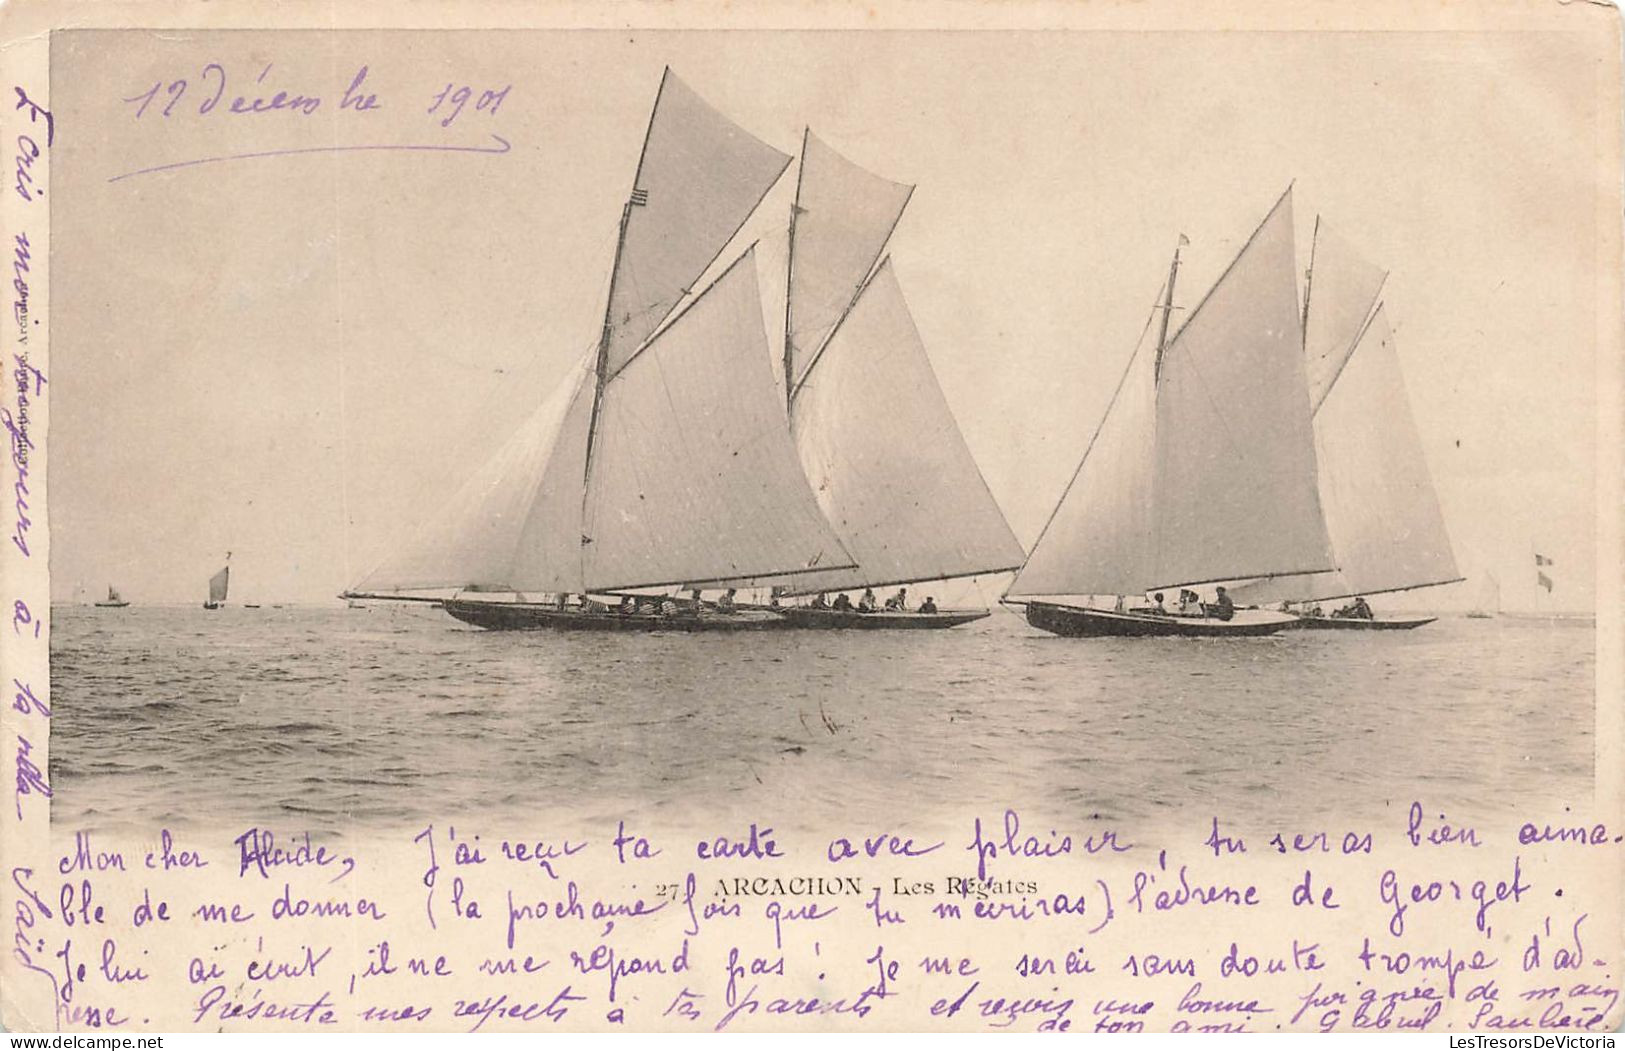 12 Décembre 1901
Mon cher Alcide, J'ai reçu ta carte avec plaisir, tu seras bien aima-
27. ARCACHON - Les Régates
ble de me donner (la prochaine fois que tu m'écriras) l'adresse de Georget.
Je lui ai écrit, il ne me répond pas! Je me serai sans doute trompé d'ad-
resse. Présente mes respects à tes parents et reçois une bonne poignée de main
de ton ami. Gabriel
Ecris moi toujours à la villa Saïd
LesTresorsDeVictoria